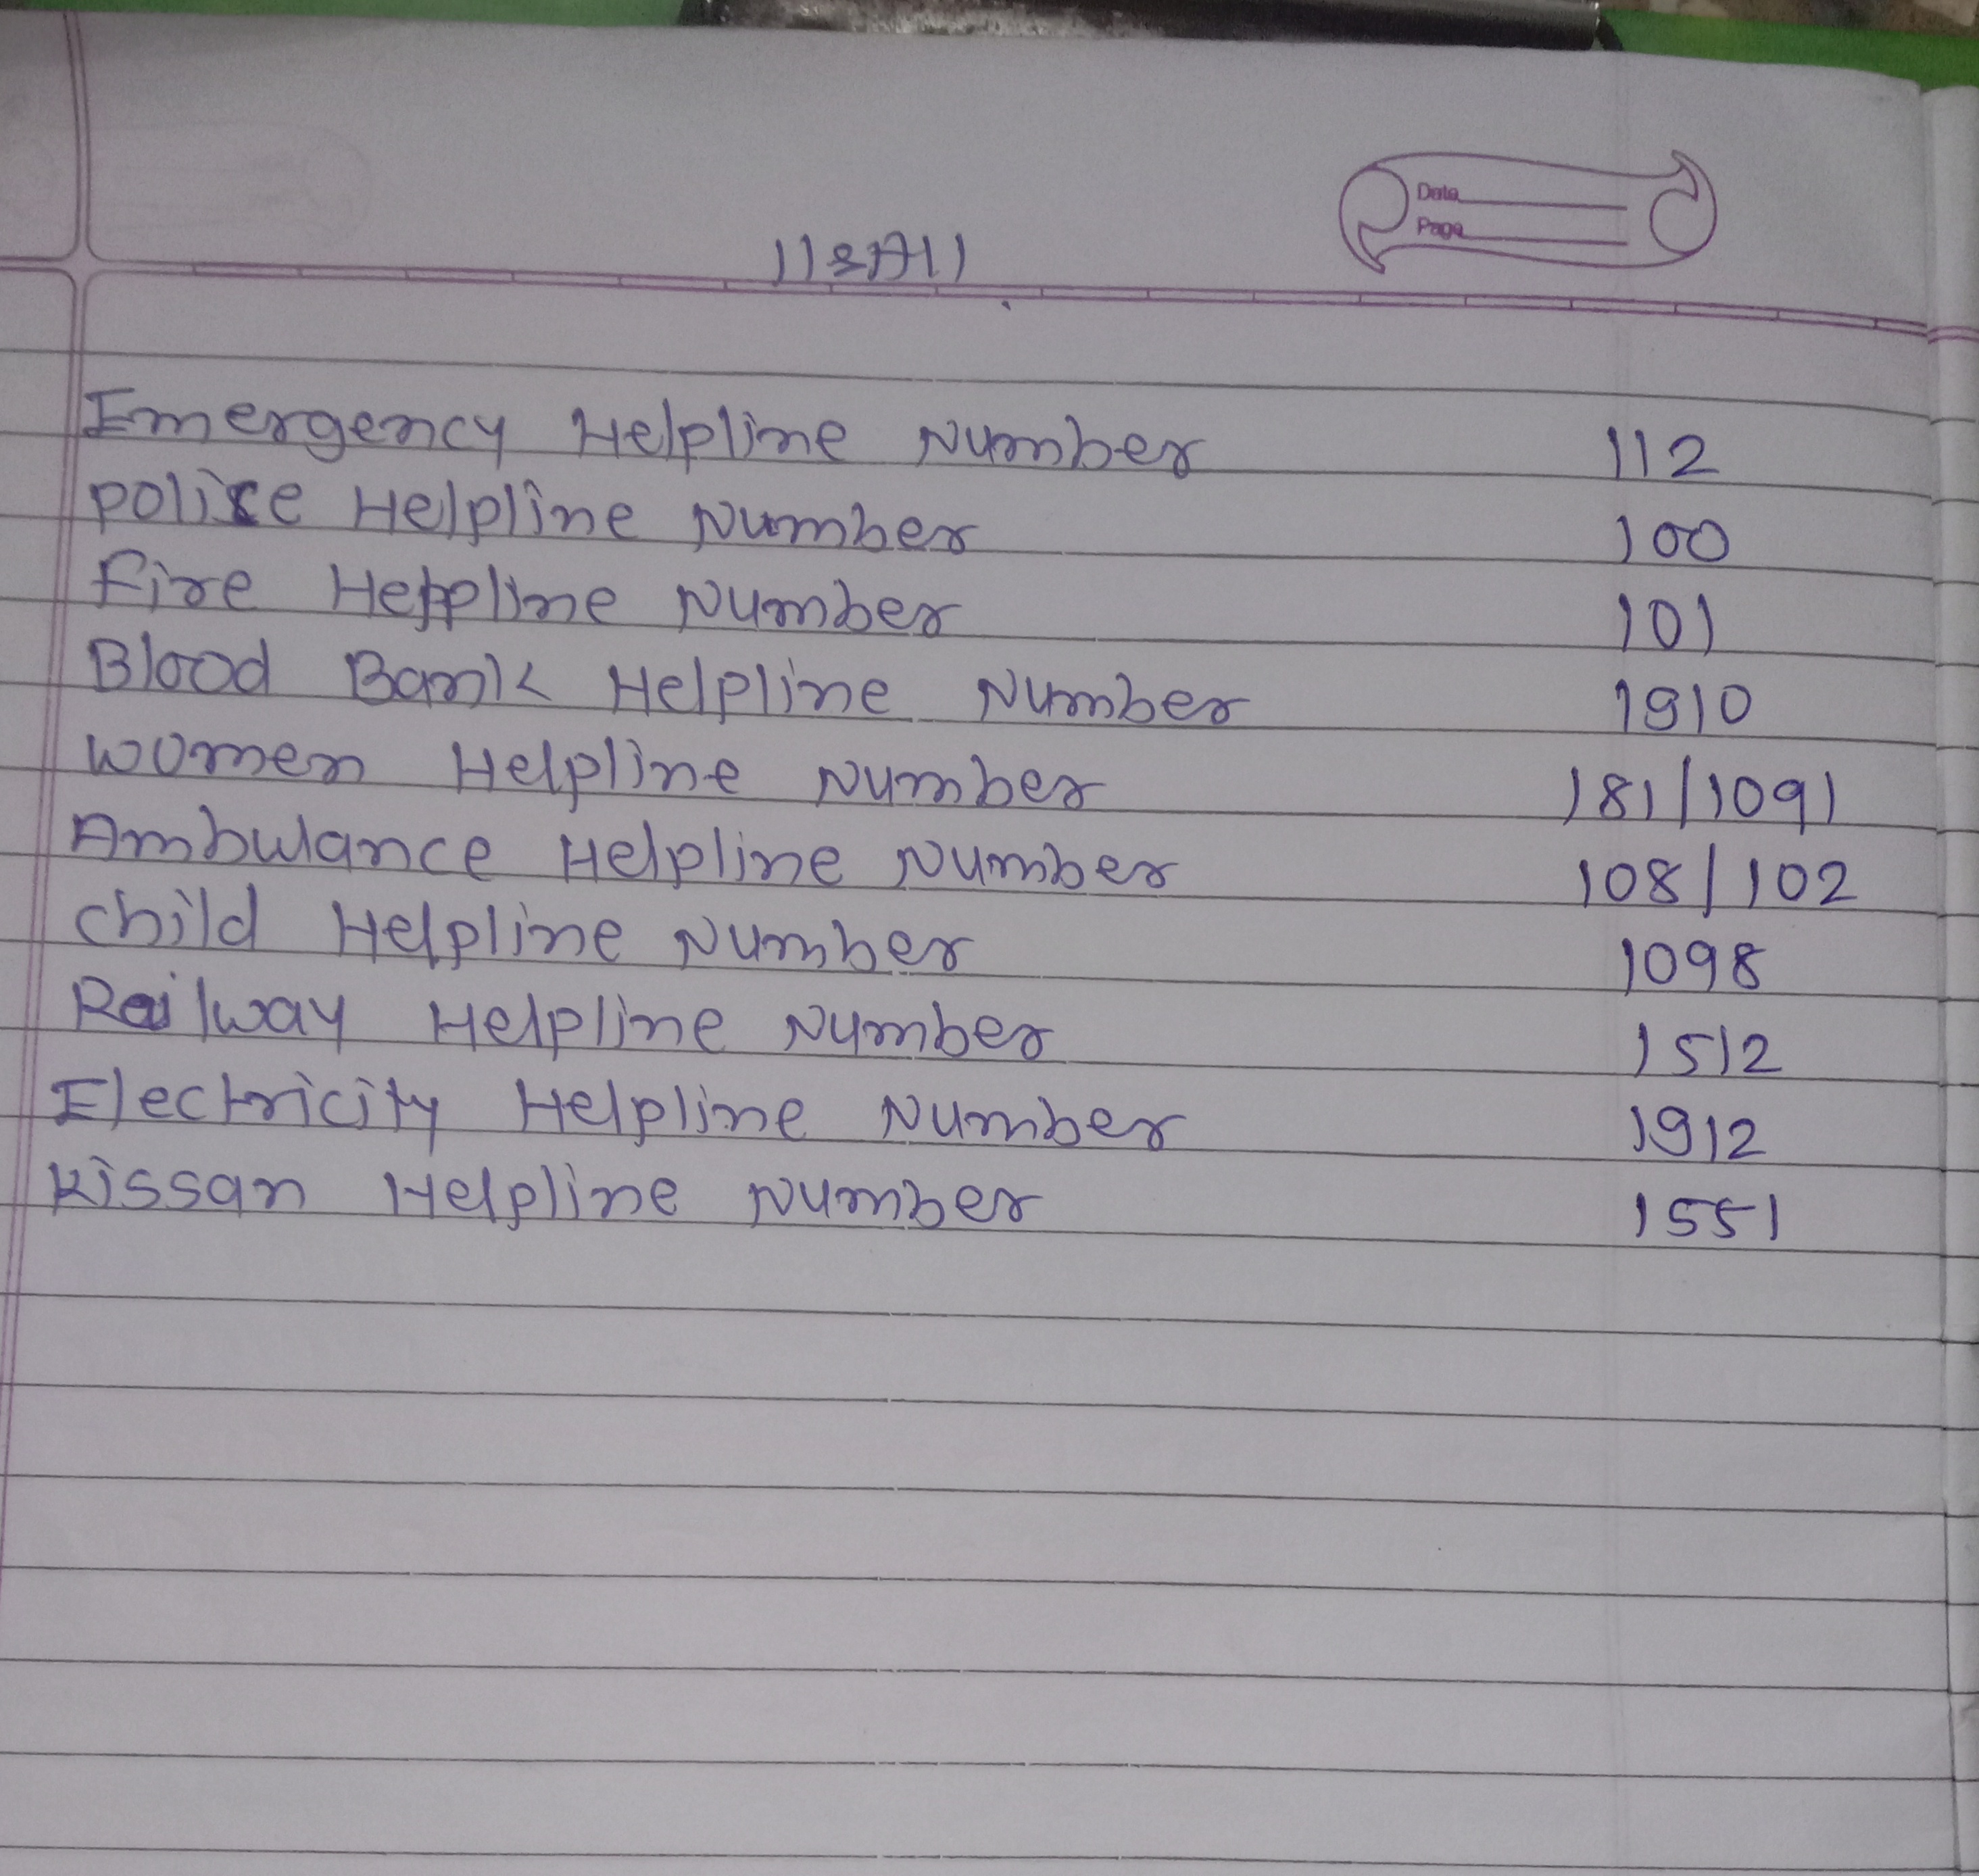 Date
Page
॥ श्री ॥
Emergency Helpline Number 112
police Helpline Number 100
Fire Helpline Number 101
Blood Bank Helpline Number 1910
women Helpline Number 181/1091
Ambulance Helpline Number 108/102
child Helpline Number 1098
Railway Helpline Number 1512
Electricity Helpline Number 1912
Kissan Helpline Number 1551